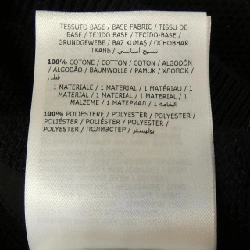 TESSUTO BASE / BASE FABRIC / TISSU DE
BASE / TEJIDO BASE / TECIDO-BASE /
GRUNDGEWEBE / BAZ KUMAŞ / ОСНОВНАЯ
ТКАНЬ / نسيج أساسي
100% COTONE / COTTON / COTON / ALGODÓN
/ ALGODÃO / BAUMWOLLE / PAMUK / ХЛОПОК
/ قطن
1 MATERIALE / 1 MATERIAL / 1 MATÉRIAU / 1
MATERIAL / 1 MATERIAL / 1 MATERIAL / 1
MALZEME / 1 МАТЕРИАЛ / 1 الخامة
100% POLIESTERE / POLYESTER / POLYESTER
/ POLIÉSTER / POLIÉSTER / POLYESTER /
POLYESTER / ПОЛИЭСТЕР / بوليستر